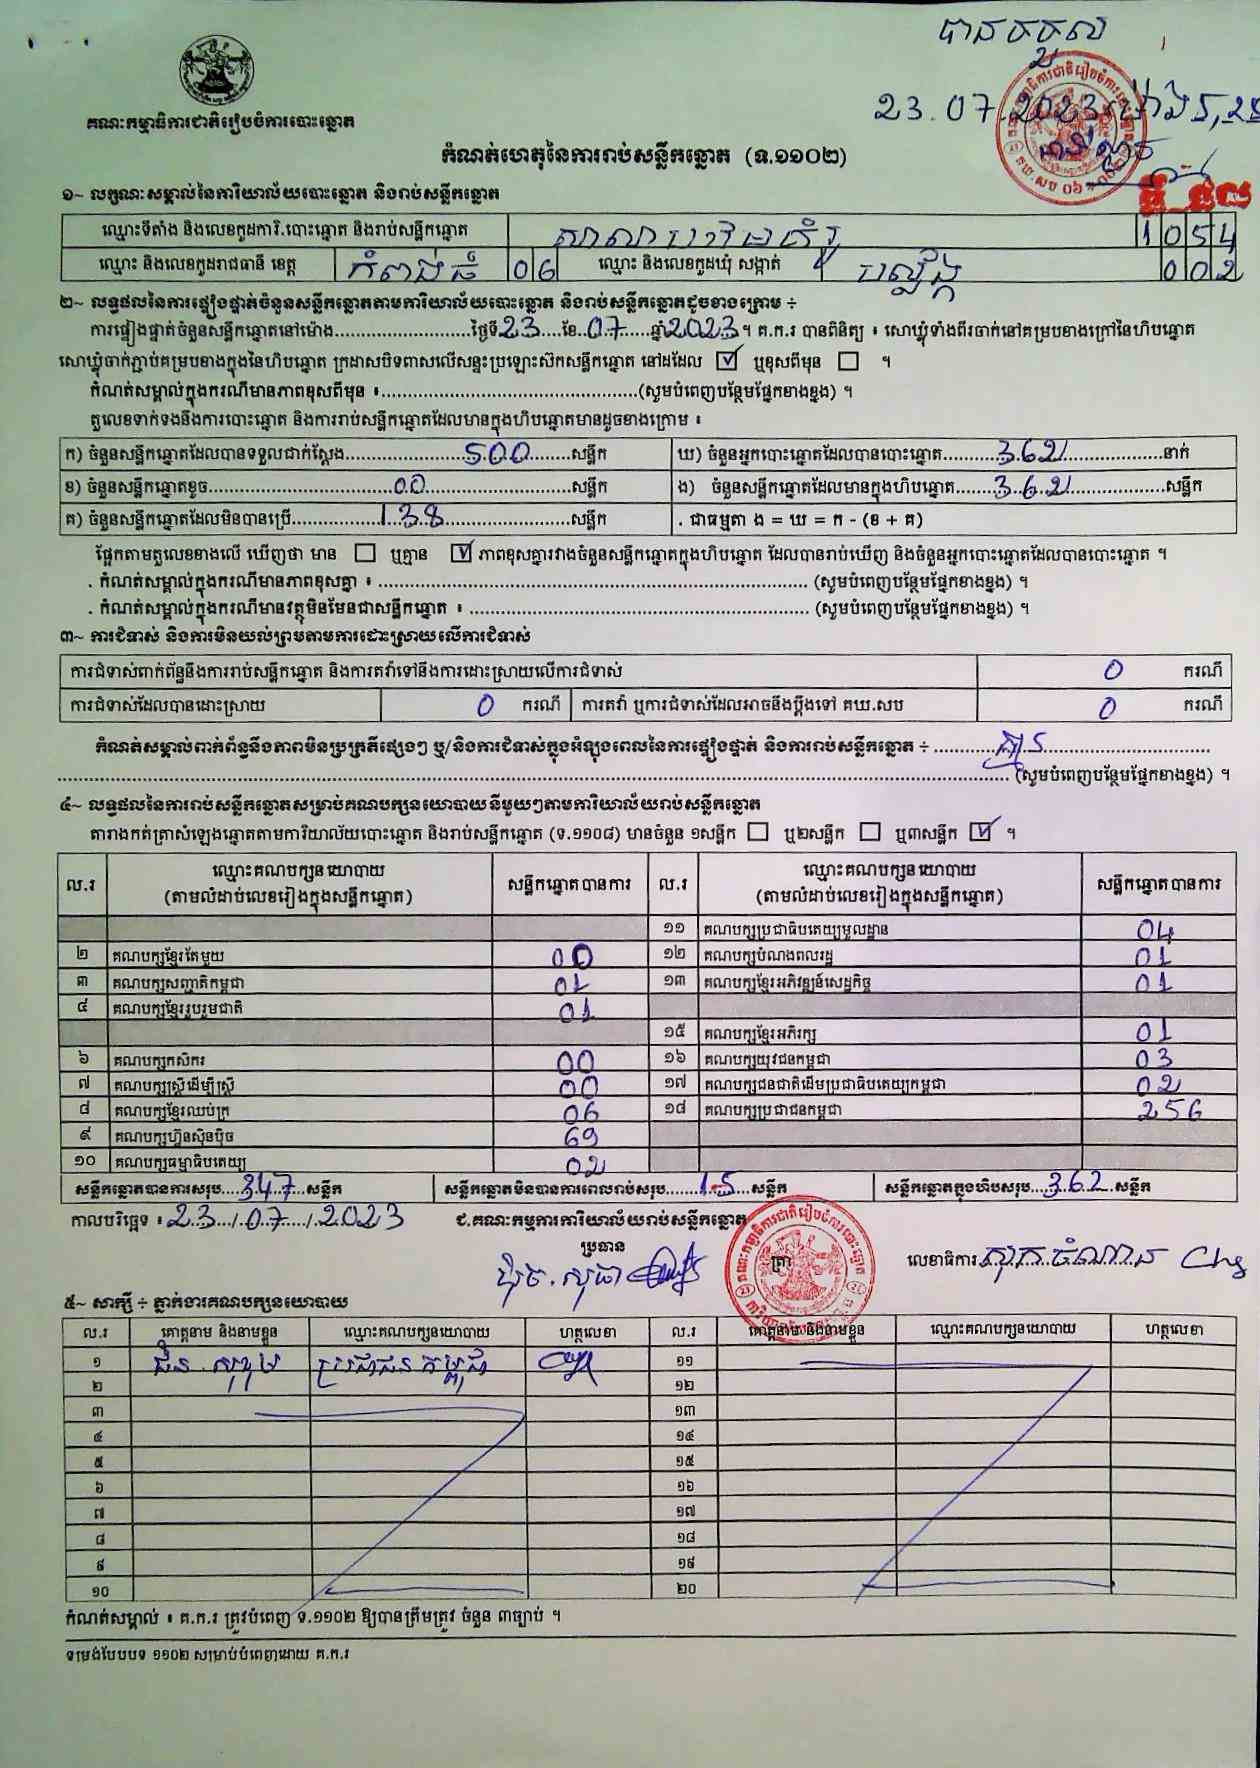 បានទទួល
23.07.2023
គណៈកម្មាធិការជាតិរៀបចំការបោះឆ្នោត
កំណត់ហេតុនៃការរាប់សន្លឹកឆ្នោត (ទ.១១០២)
១~ លក្ខណៈសម្គាល់នៃការិយាល័យបោះឆ្នោត និងរាប់សន្លឹកឆ្នោត
ឈ្មោះទីតាំង និងលេខកូដការិ.បោះឆ្នោត និងរាប់សន្លឹកឆ្នោត 1054
ឈ្មោះ និងលេខកូដរាជធានី ខេត្ត កំពង់ធំ 06 ឈ្មោះ និងលេខកូដឃុំ សង្កាត់ បល្ល័ង្ក 002
២~ លទ្ធផលនៃការផ្ទៀងផ្ទាត់ចំនួនសន្លឹកឆ្នោតតាមការិយាល័យបោះឆ្នោត និងរាប់សន្លឹកឆ្នោតដូចខាងក្រោម ÷
ការផ្ទៀងផ្ទាត់ចំនួនសន្លឹកឆ្នោតនៅម៉ោង..........ថ្ងៃទី23...ខែ.07......ឆ្នាំ2023។ គ.ក.រ បានពិនិត្យ ៖ សោឃ្លុំទាំងពីរចាក់នៅគម្របខាងក្រៅនៃហិបឆ្នោត
សោឃ្លុំចាក់ភ្ជាប់គម្របខាងក្នុងនៃហិបឆ្នោត ក្រដាសបិទពាសលើសន្ទះប្រឡោះស៊កសន្លឹកឆ្នោត នៅដដែល ☑ ឬខុសពីមុន ☐ ។
កំណត់សម្គាល់ក្នុងករណីមានភាពខុសពីមុន ៖..........(សូមបំពេញបន្ថែមផ្នែកខាងខ្នង) ។
តួលេខទាក់ទងនឹងការបោះឆ្នោត និងការរាប់សន្លឹកឆ្នោតដែលមានក្នុងហិបឆ្នោតមានដូចខាងក្រោម ៖
ក) ចំនួនសន្លឹកឆ្នោតដែលបានទទួលជាក់ស្តែង..........500......សន្លឹក ឃ) ចំនួនអ្នកបោះឆ្នោតដែលបានបោះឆ្នោត........362..........នាក់
ខ) ចំនួនសន្លឹកឆ្នោតខូច..........00..........សន្លឹក ង) ចំនួនសន្លឹកឆ្នោតដែលមានក្នុងហិបឆ្នោត......362..........សន្លឹក
គ) ចំនួនសន្លឹកឆ្នោតដែលមិនបានប្រើ..........138..........សន្លឹក . ជាធម្មតា ង = ឃ = ក - (ខ + គ)
ផ្អែកតាមតួលេខខាងលើ ឃើញថា មាន ☐ ឬគ្មាន ☑ ភាពខុសគ្នារវាងចំនួនសន្លឹកឆ្នោតក្នុងហិបឆ្នោត ដែលបានរាប់ឃើញ និងចំនួនអ្នកបោះឆ្នោតដែលបានបោះឆ្នោត ។
. កំណត់សម្គាល់ក្នុងករណីមានភាពខុសគ្នា ៖ .......... (សូមបំពេញបន្ថែមផ្នែកខាងខ្នង) ។
. កំណត់សម្គាល់ក្នុងករណីមានវត្ថុមិនមែនជាសន្លឹកឆ្នោត ៖ .......... (សូមបំពេញបន្ថែមផ្នែកខាងខ្នង) ។
៣~ ការជំទាស់ និងការមិនយល់ព្រមតាមការដោះស្រាយលើការជំទាស់
ការជំទាស់ពាក់ព័ន្ធនឹងការរាប់សន្លឹកឆ្នោត និងការតវ៉ាទៅនឹងការដោះស្រាយលើការជំទាស់ 0 ករណី
ការជំទាស់ដែលបានដោះស្រាយ 0 ករណី ការតវ៉ា ឬការជំទាស់ដែលអាចនឹងប្តឹងទៅ គឃ.សប 0 ករណី
កំណត់សម្គាល់ពាក់ព័ន្ធនឹងភាពមិនប្រក្រតីផ្សេងៗ ឬ/និងការជំទាស់ក្នុងអំឡុងពេលនៃការផ្ទៀងផ្ទាត់ និងការរាប់សន្លឹកឆ្នោត ÷ ..........គ្មាន..........
..........(សូមបំពេញបន្ថែមផ្នែកខាងខ្នង) ។
៤~ លទ្ធផលនៃការរាប់សន្លឹកឆ្នោតសម្រាប់គណបក្សនយោបាយនីមួយៗតាមការិយាល័យរាប់សន្លឹកឆ្នោត
តារាងកត់ត្រាសំឡេងឆ្នោតតាមការិយាល័យបោះឆ្នោត និងរាប់សន្លឹកឆ្នោត (ទ.១១០៨) មានចំនួន ១សន្លឹក ☐ ឬ២សន្លឹក ☐ ឬ៣សន្លឹក ☑ ។
ល.រ ឈ្មោះគណបក្សនយោបាយ (តាមលំដាប់លេខរៀងក្នុងសន្លឹកឆ្នោត) សន្លឹកឆ្នោតបានការ ល.រ ឈ្មោះគណបក្សនយោបាយ (តាមលំដាប់លេខរៀងក្នុងសន្លឹកឆ្នោត) សន្លឹកឆ្នោតបានការ
១១ គណបក្សប្រជាធិបតេយ្យមូលដ្ឋាន 04
២ គណបក្សខ្មែរតែមួយ 00 ១២ គណបក្សបំណងពលរដ្ឋ 01
៣ គណបក្សសញ្ជាតិកម្ពុជា 01 ១៣ គណបក្សខ្មែរអភិវឌ្ឍន៍សេដ្ឋកិច្ច 01
៤ គណបក្សខ្មែររួបរួមជាតិ 01
១៥ គណបក្សខ្មែរអភិរក្ស 01
៦ គណបក្សកសិករ 00 ១៦ គណបក្សយុវជនកម្ពុជា 03
៧ គណបក្សស្ត្រីដើម្បីស្ត្រី 00 ១៧ គណបក្សជនជាតិដើមប្រជាធិបតេយ្យកម្ពុជា 02
៨ គណបក្សខ្មែរឈប់ក្រ 06 ១៨ គណបក្សប្រជាជនកម្ពុជា 256
៩ គណបក្សហ៊្វុនស៊ិនប៉ិច 69
១០ គណបក្សធម្មាធិបតេយ្យ 02
សន្លឹកឆ្នោតបានការសរុប....347..សន្លឹក សន្លឹកឆ្នោតមិនបានការពេលរាប់សរុប........15...សន្លឹក សន្លឹកឆ្នោតក្នុងហិបសរុប...362..សន្លឹក
កាលបរិច្ឆេទ ៖23.../.07..../.2023 ជ.គណៈកម្មការការិយាល័យរាប់សន្លឹកឆ្នោត
ប្រធាន ត្រា លេខាធិការ សុក ចំណាន
៥~ សាក្សី ÷ ភ្នាក់ងារគណបក្សនយោបាយ
ល.រ គោត្តនាម និងនាមខ្លួន ឈ្មោះគណបក្សនយោបាយ ហត្ថលេខា ល.រ គោត្តនាម និងនាមខ្លួន ឈ្មោះគណបក្សនយោបាយ ហត្ថលេខា
១ ប្រជាជនកម្ពុជា ១១
២ ១២
៣ ១៣
៤ ១៤
៥ ១៥
៦ ១៦
៧ ១៧
៨ ១៨
៩ ១៩
១០ ២០
កំណត់សម្គាល់ ៖ គ.ក.រ ត្រូវបំពេញ ទ.១១០២ ឱ្យបានត្រឹមត្រូវ ចំនួន ៣ច្បាប់ ។
ទម្រង់បែបបទ ១១០២ សម្រាប់បំពេញដោយ គ.ក.រ